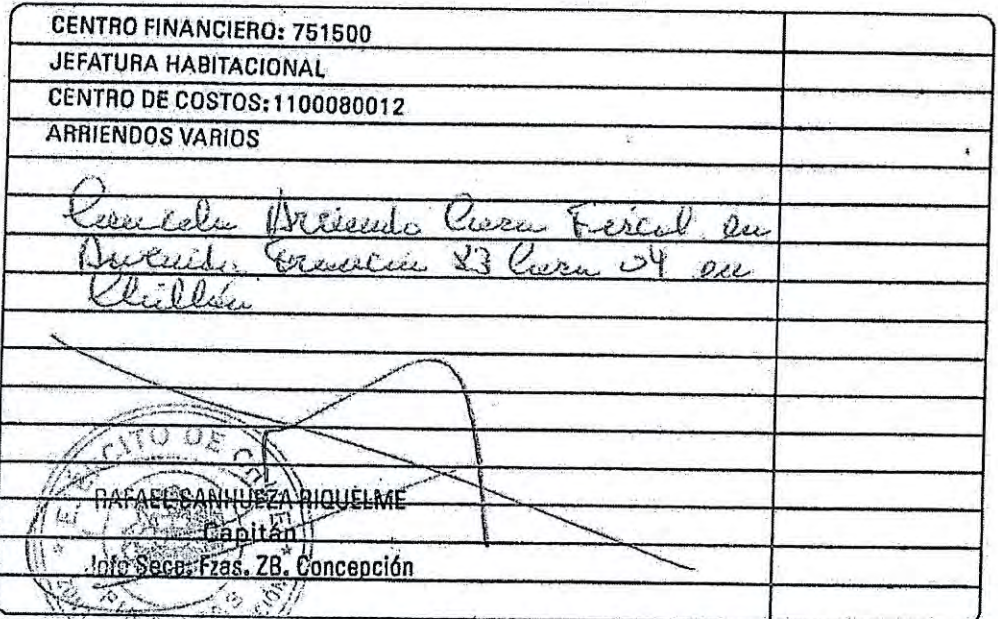 CENTRO FINANCIERO: 751500
JEFATURA HABITACIONAL
CENTRO DE COSTOS: 1100080012
ARRIENDOS VARIOS
Cancela Arriendo Casa Fiscal en
Avenida Francia 23 Casa 04 en
Chillán
EJERCITO DE CHILE
RAFAEL SANHUEZA RIQUELME
Capitán
Jefe Secc. Fzas. ZB. Concepción